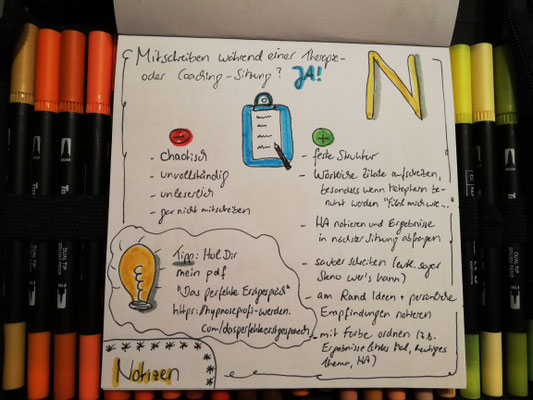 Mitschreiben während einer Therapie-
oder Coaching-Sitzung? JA!
N
- chaotisch
- unvollständig
- unleserlich
- gar nicht mitschreiben
- feste Struktur
- Wörtliche Zitate aufschreiben,
besonders wenn Metaphern be-
nutzt werden "fühl mich wie..."
- HA notieren und Ergebnisse
in nächster Sitzung abfragen
- sauber schreiben (evtl. sogar
Steno wer's kann)
- am Rand Ideen + persönliche
Empfindungen notieren
- mit Farbe ordnen (z.B.
Ergebnisse letztes Mal, heutiges
Thema, HA)
Tipp: Hol Dir
mein pdf
"Das perfekte Erstgespräch"
https://hypnoseprofi-werden.
com/dasperfekteerstgespraech
Notizen